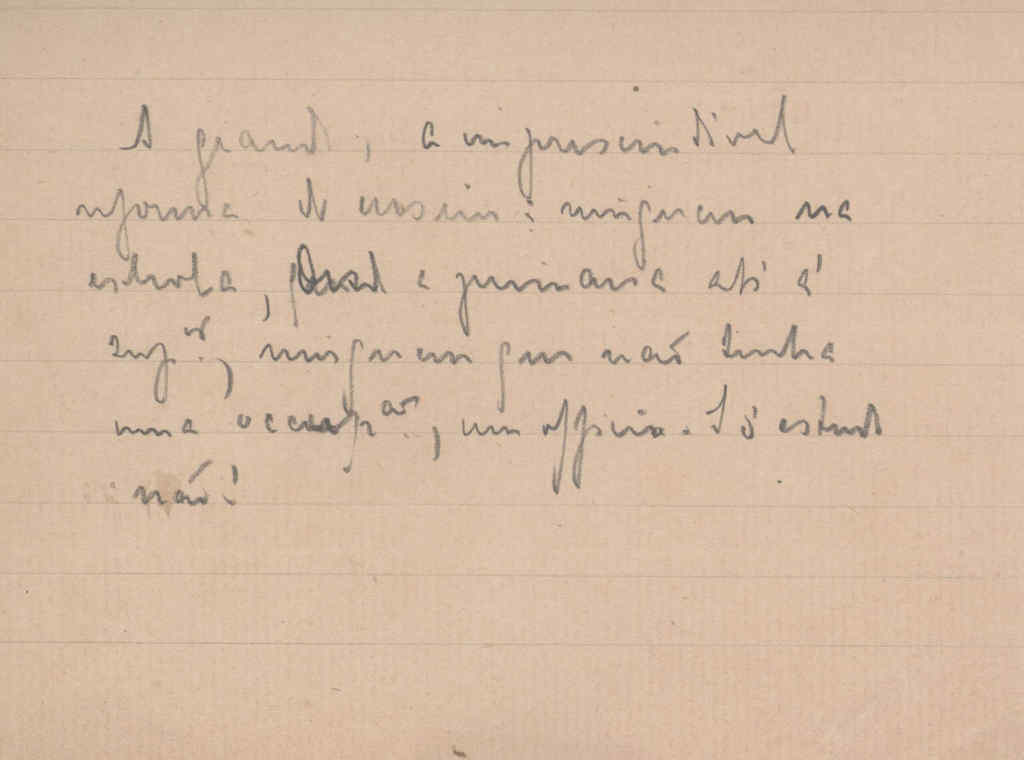 A grande, a imprescindivel
reforma do ensino: ninguem na
eschola, desde a primaria até á
sup.or, ninguem que não tenha
uma occup.ão, um officio. Só estudo
não!